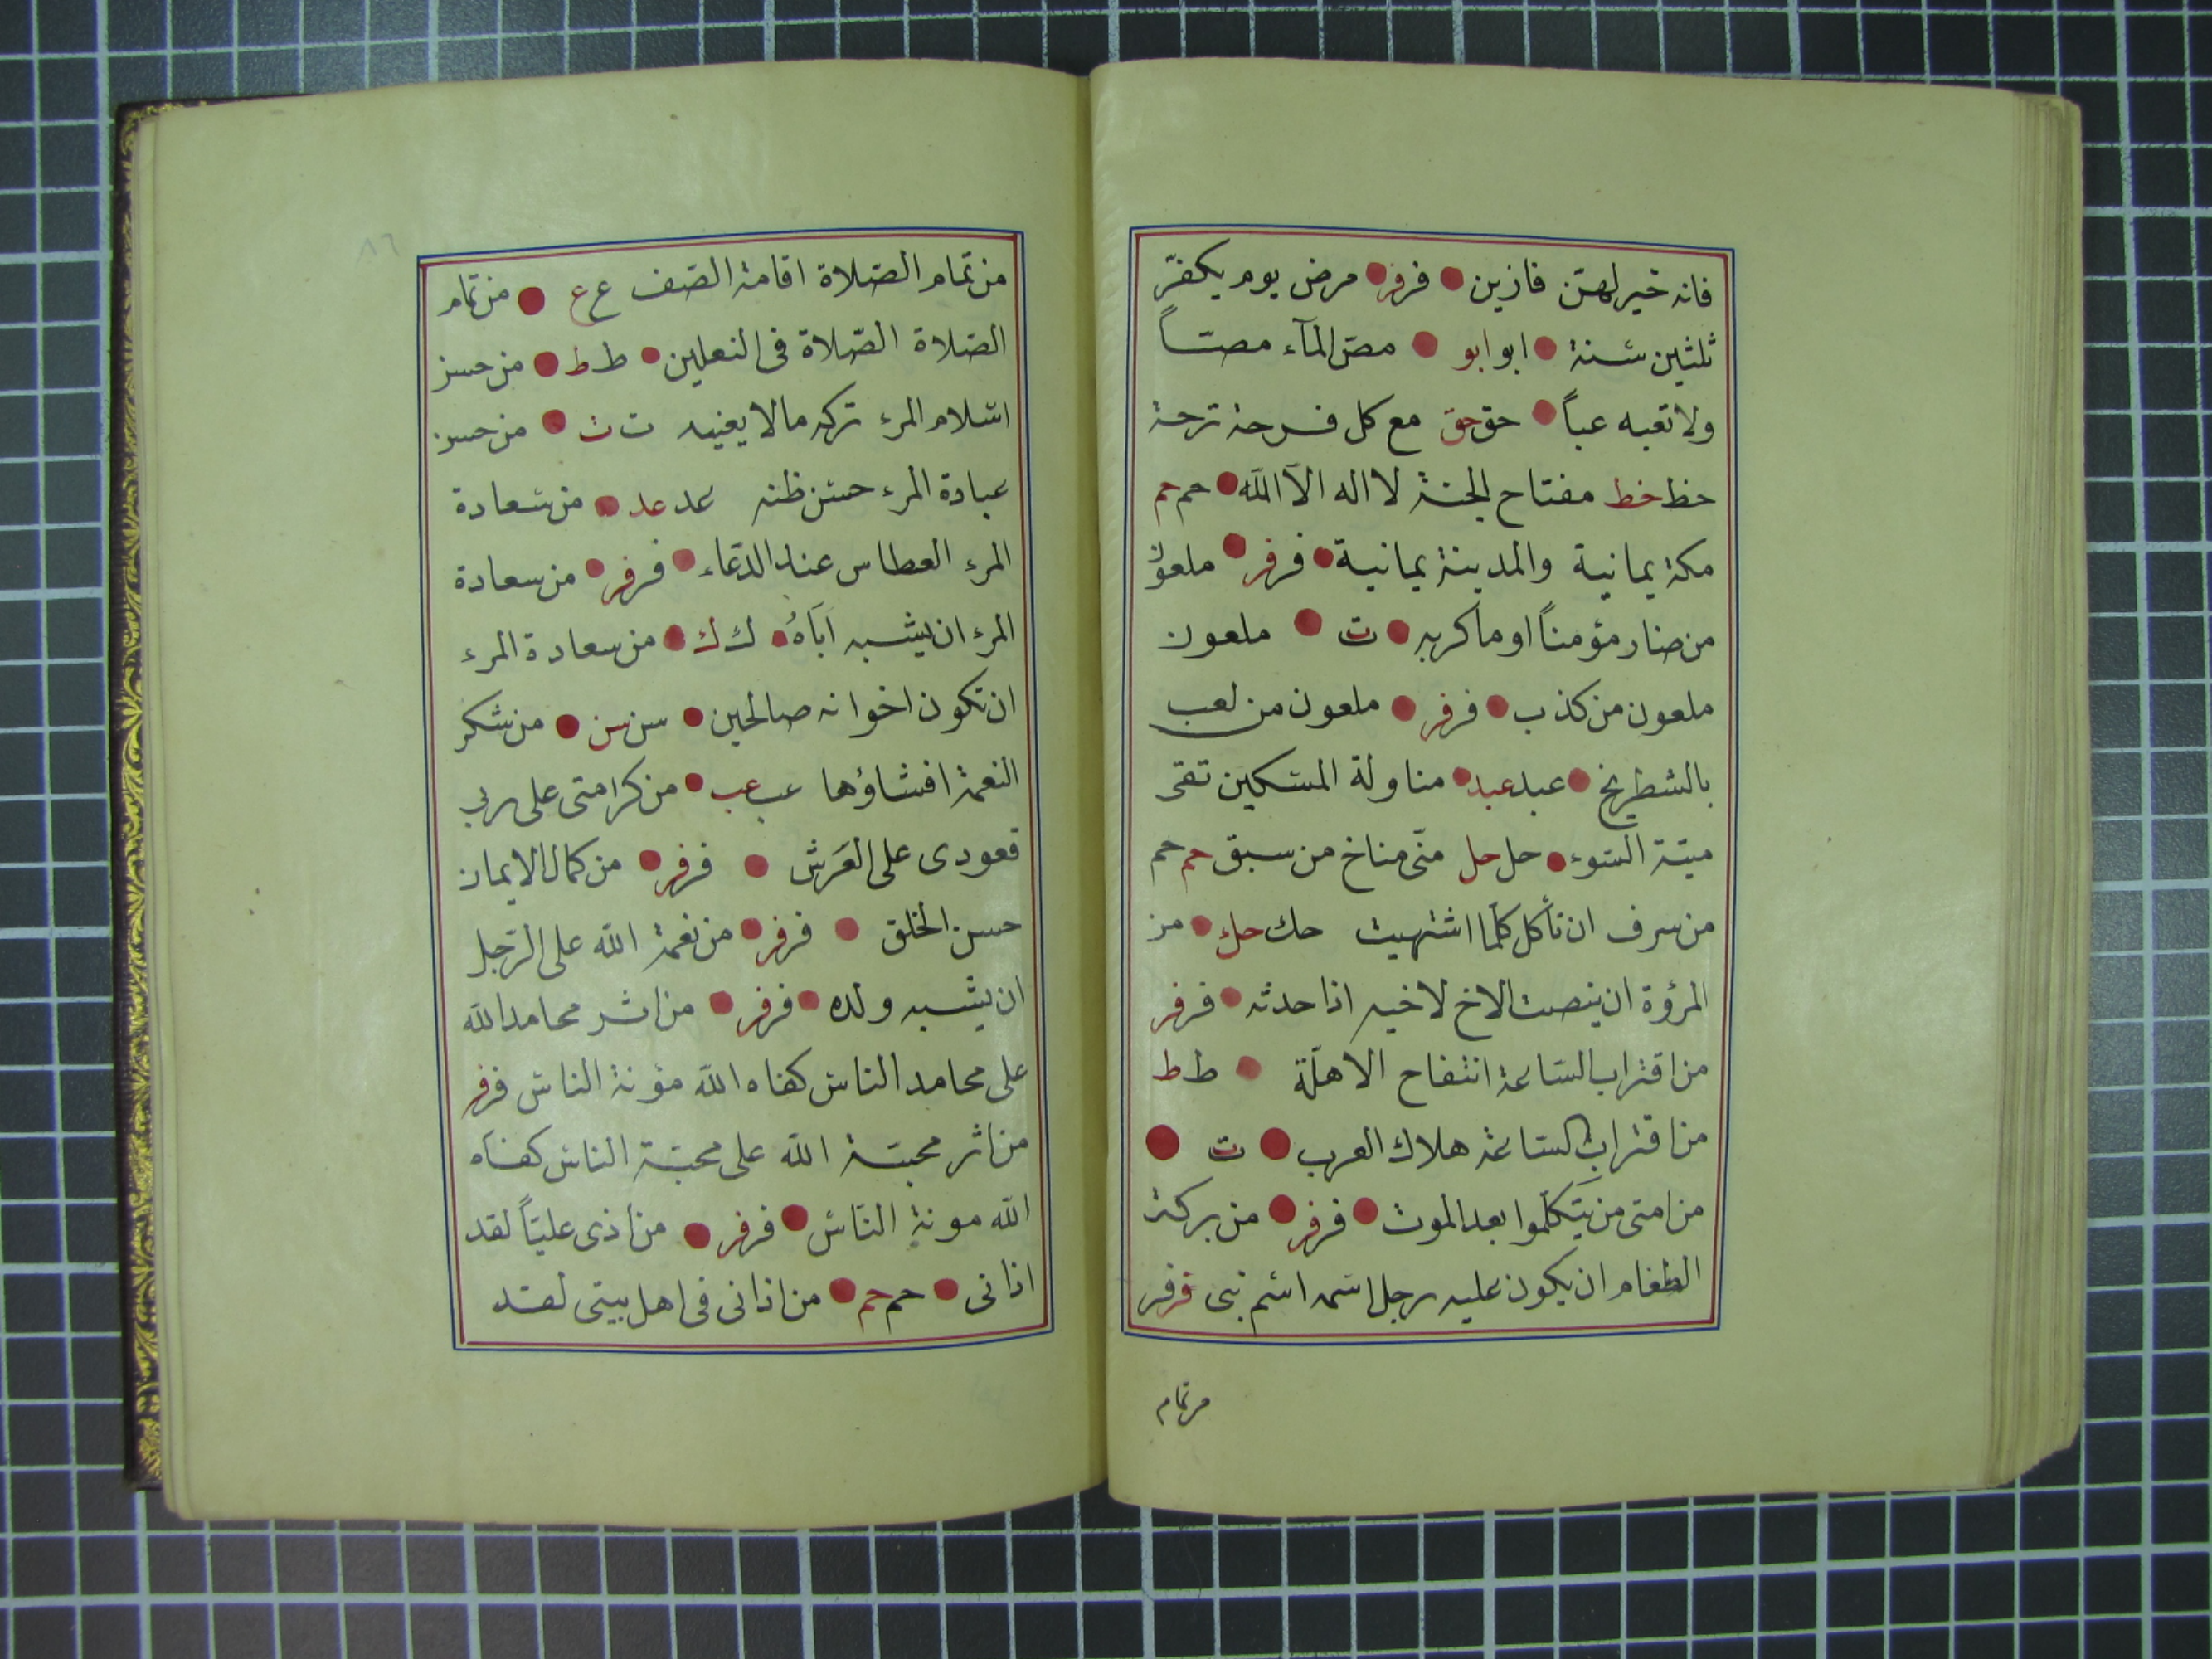 فانه خير لهن فازين فرفر مرض يوم يكفّر
ثلثين سنة ابو ابو مصّ المآء مصّاً
ولا تعبه عباً حق حق مع كل فرحة ترحة
خط خط مفتاح الجنة لا اله الّا اللّه حم حم
مكة يمانية والمدينة يمانية فرفر ملعون
من ضار مؤمناً او ماكر به ت ملعون
ملعون من كذب فرفر ملعون من لعب
بالشطرنج عبد عبد مناولة المسكين تقى
ميتة السّوء حل حل منى مناخ من سبق حم حم
من سرف ان تأكل كلّما اشتهيت حك حك من
المرؤة ان ينصت الاخ لاخيه اذا حدثه فرفر
من اقتراب السّاعة انتفاح الاهلّة ط ط
من اقتراب السّاعة هلاك العرب ت
من امتى من يَتكلّموا بعد الموت فرفر من بركة
الطعام ان يكون عليه رجل اسمه اسم نبى فرفر
من تمام
٨٦
من تمام الصّلاة اقامة الصّف ع ع من تمام
الصّلاة الصّلاة فى النعلين ط ط من حسن
اسلام المرء تركه مالا يعنيه ت ت من حسن
عبادة المرء حسن ظنه عد عد من سعادة
المرء العطاس عند الدّعاء فرفر من سعادة
المرء ان يشبه اَبَاهُ ك ك من سعادة المرء
ان تكون اخوانه صالحين سن سن من شكر
النعمة افشاؤها عب عب من كرامتى على ربى
قعودى على العَرش فرفر من كمال الايمان
حسن الخلق فرفر من نعمة اللّه على الرّجل
ان يشبه ولده فرفر من اثر محامد اللّه
على محامد الناس كفاه اللّه مؤنة الناس فرفر
من اثر محبّة اللّه على محبّة الناس كفاه
اللّه مونة النّاس فرفر من اذى عليّاً لقد
اذانى حم حم من اذانى فى اهل بيتى لقد